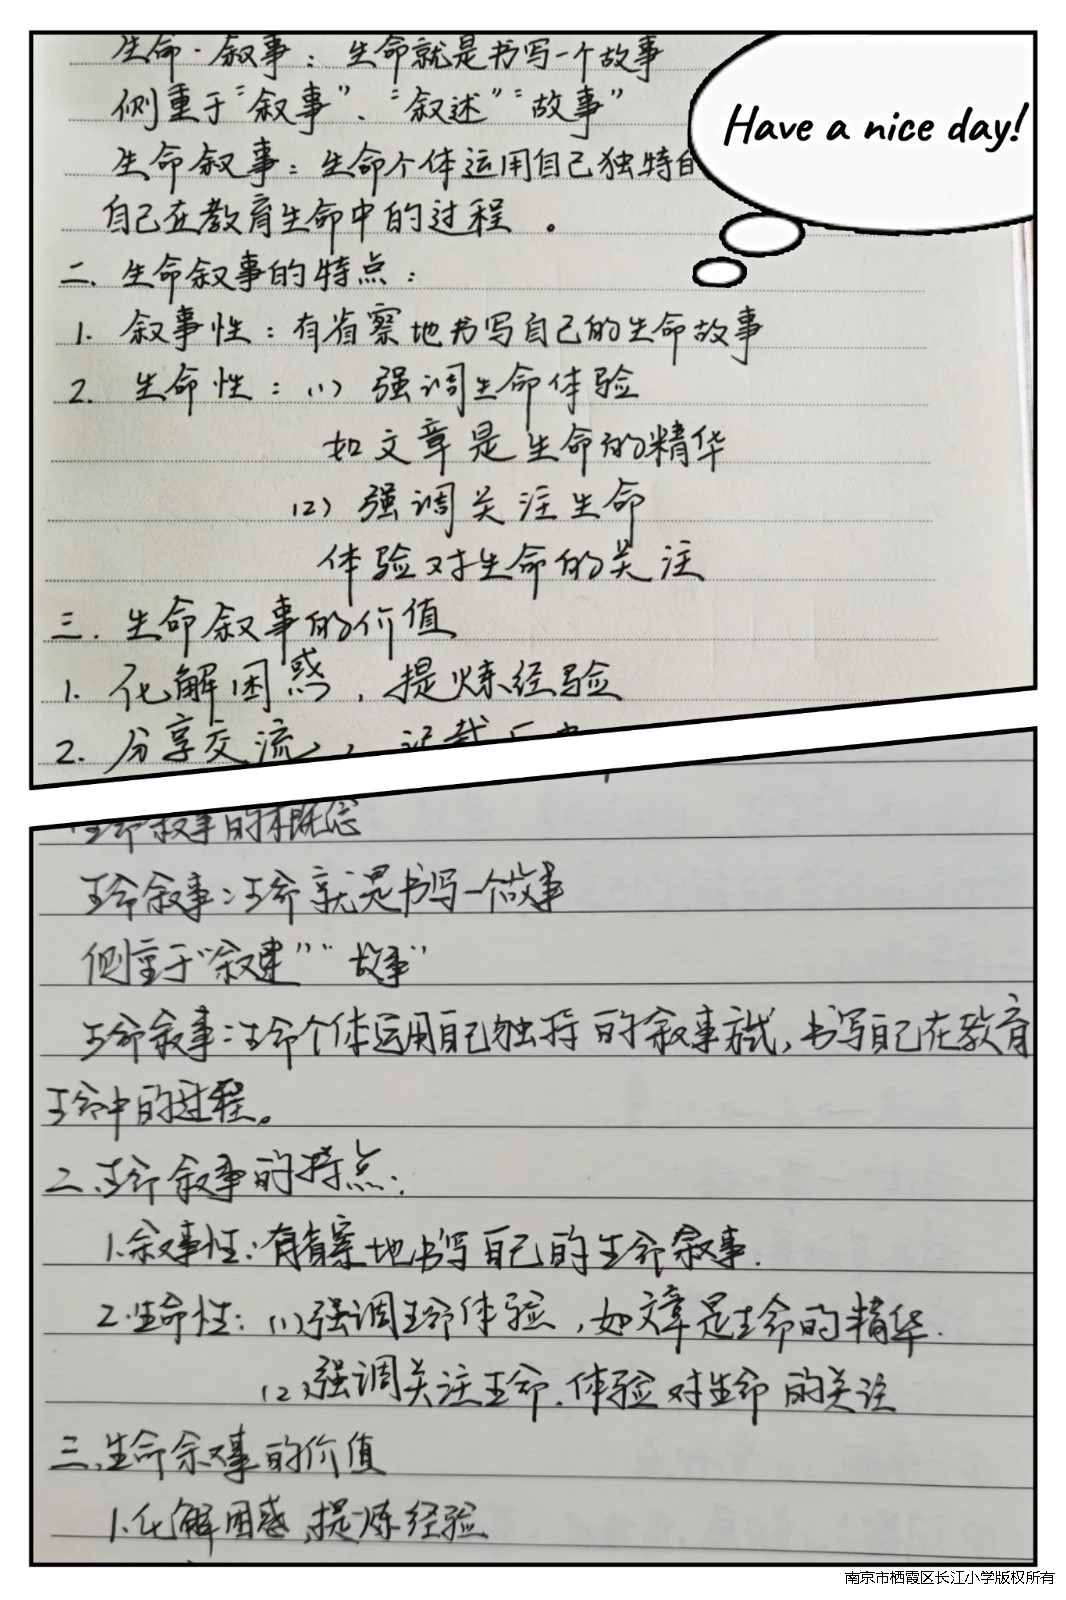 生命·叙事：生命就是书写一个故事
侧重于“叙事”、“叙述”“故事”
Have a nice day!
生命叙事：生命个体运用自己独特
自己在教育生命中的过程 。
二、生命叙事的特点：
1. 叙事性：有省察地书写自己的生命故事
2. 生命性：(1) 强调生命体验
如文章是生命的精华
(2) 强调关注生命
体验对生命的关注
三. 生命叙事的价值
1. 化解困惑，提炼经验
2. 分享交流
生命叙事的概念
生命叙事：生命就是书写一个故事
侧重于“叙事”“故事”
生命叙事：生命个体运用自己独特的叙事方式，书写自己在教育
生命中的过程。
二、生命叙事的特点：
1.叙事性：有省察地书写自己的生命叙事.
2.生命性：(1)强调生命体验，如文章是生命的精华.
(2)强调关注生命.体验对生命的关注
三、生命叙事的价值
1.化解困惑、提炼经验
南京市栖霞区长江小学版权所有